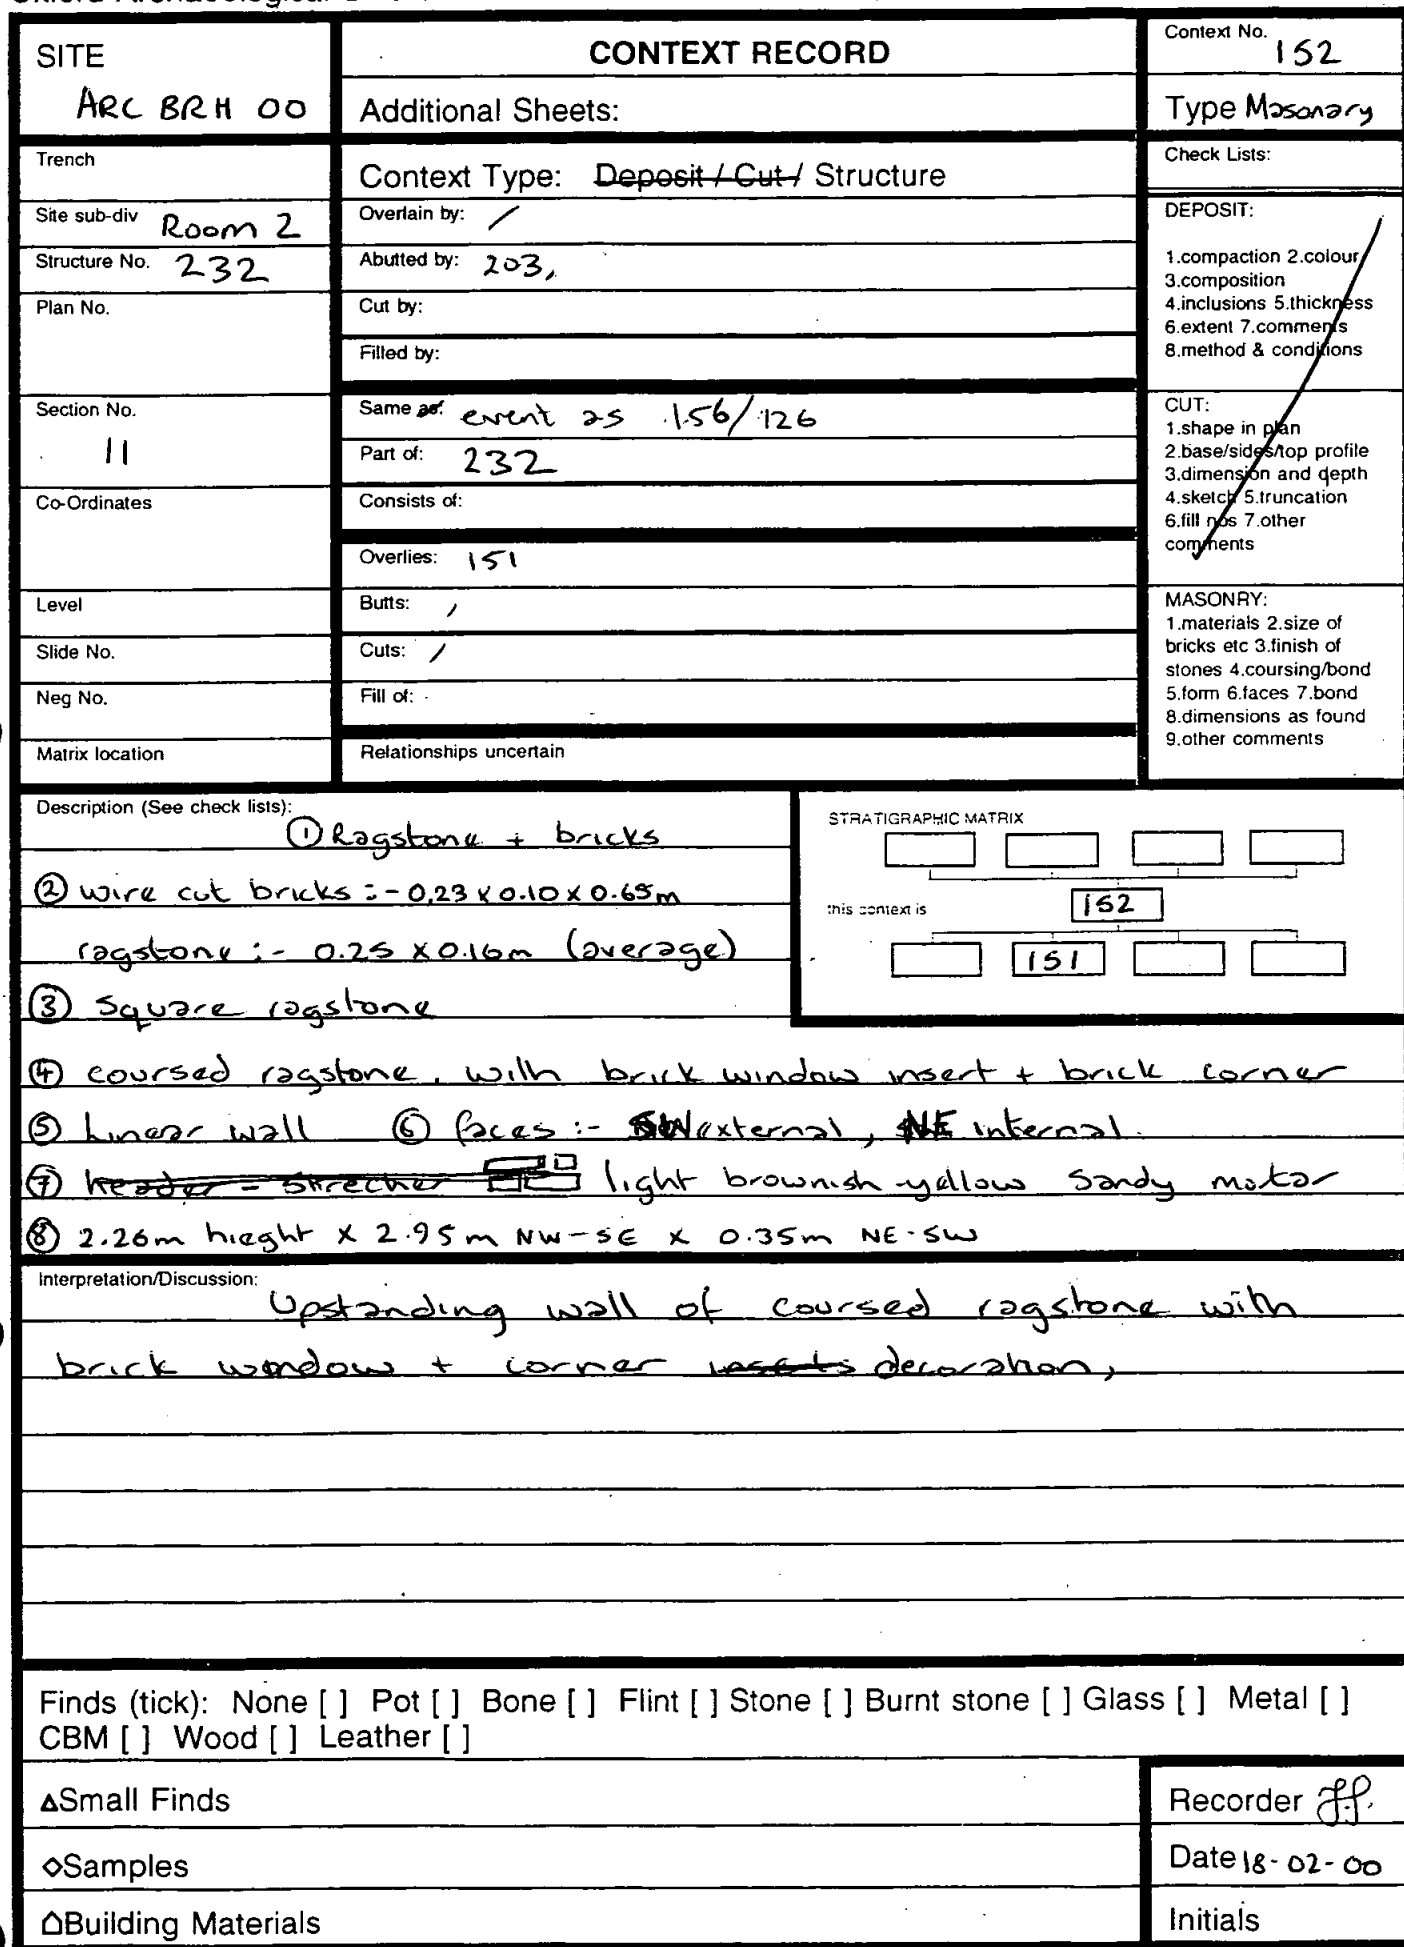 SITE
ARC BRH 00
CONTEXT RECORD
Additional Sheets:
Context No.
152
Type Masonary
Trench
Site sub-div Room 2
Structure No. 232
Plan No.
Section No.
11
Co-Ordinates
Level
Slide No.
Neg No.
Matrix location
Context Type: Deposit / Cut / Structure
Overlain by: /
Abutted by: 203,
Cut by:
Filled by:
Same as: event as 156/126
Part of: 232
Consists of:
Overlies: 151
Butts: /
Cuts: /
Fill of:
Relationships uncertain
Check Lists:
DEPOSIT:
1.compaction 2.colour
3.composition
4.inclusions 5.thickness
6.extent 7.comments
8.method & conditions
CUT:
1.shape in plan
2.base/sides/top profile
3.dimension and depth
4.sketch 5.truncation
6.fill nos 7.other
comments
MASONRY:
1.materials 2.size of
bricks etc 3.finish of
stones 4.coursing/bond
5.form 6.faces 7.bond
8.dimensions as found
9.other comments
Description (See check lists):
① Ragstone + bricks
② wire cut bricks :- 0.23 x 0.10 x 0.65m
ragstone :- 0.25 x 0.16m (average)
③ Square ragstone
④ coursed ragstone, with brick window insert + brick corner
⑤ Linear wall ⑥ faces :- SW external, NE internal.
⑦ header - strecher light brownish-yellow sandy motar
⑧ 2.26m hieght x 2.95m NW-SE x 0.35m NE-SW
STRATIGRAPHIC MATRIX
this context is
152
151
Interpretation/Discussion:
Upstanding wall of coursed ragstone with
brick window + corner inserts decoration,
Finds (tick): None [ ] Pot [ ] Bone [ ] Flint [ ] Stone [ ] Burnt stone [ ] Glass [ ] Metal [ ]
CBM [ ] Wood [ ] Leather [ ]
△Small Finds
◇Samples
⌂Building Materials
Recorder
Date 18-02-00
Initials